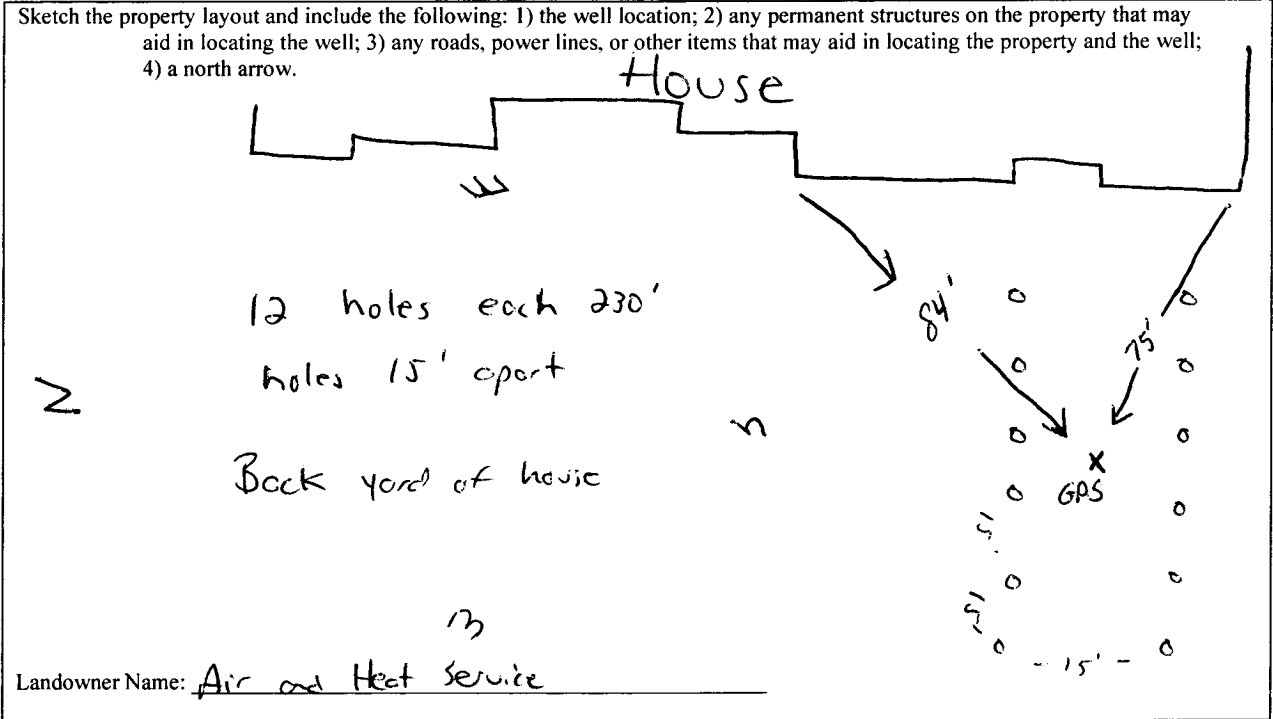 Sketch the property layout and include the following: 1) the well location; 2) any permanent structures on the property that may
aid in locating the well; 3) any roads, power lines, or other items that may aid in locating the property and the well;
4) a north arrow.
House
W
12 holes each 230'
84'
75'
holes 15' apart
N
S
Back yard of house
X
GPS
15'
15'
E
15'
Landowner Name: Air and Heat Service